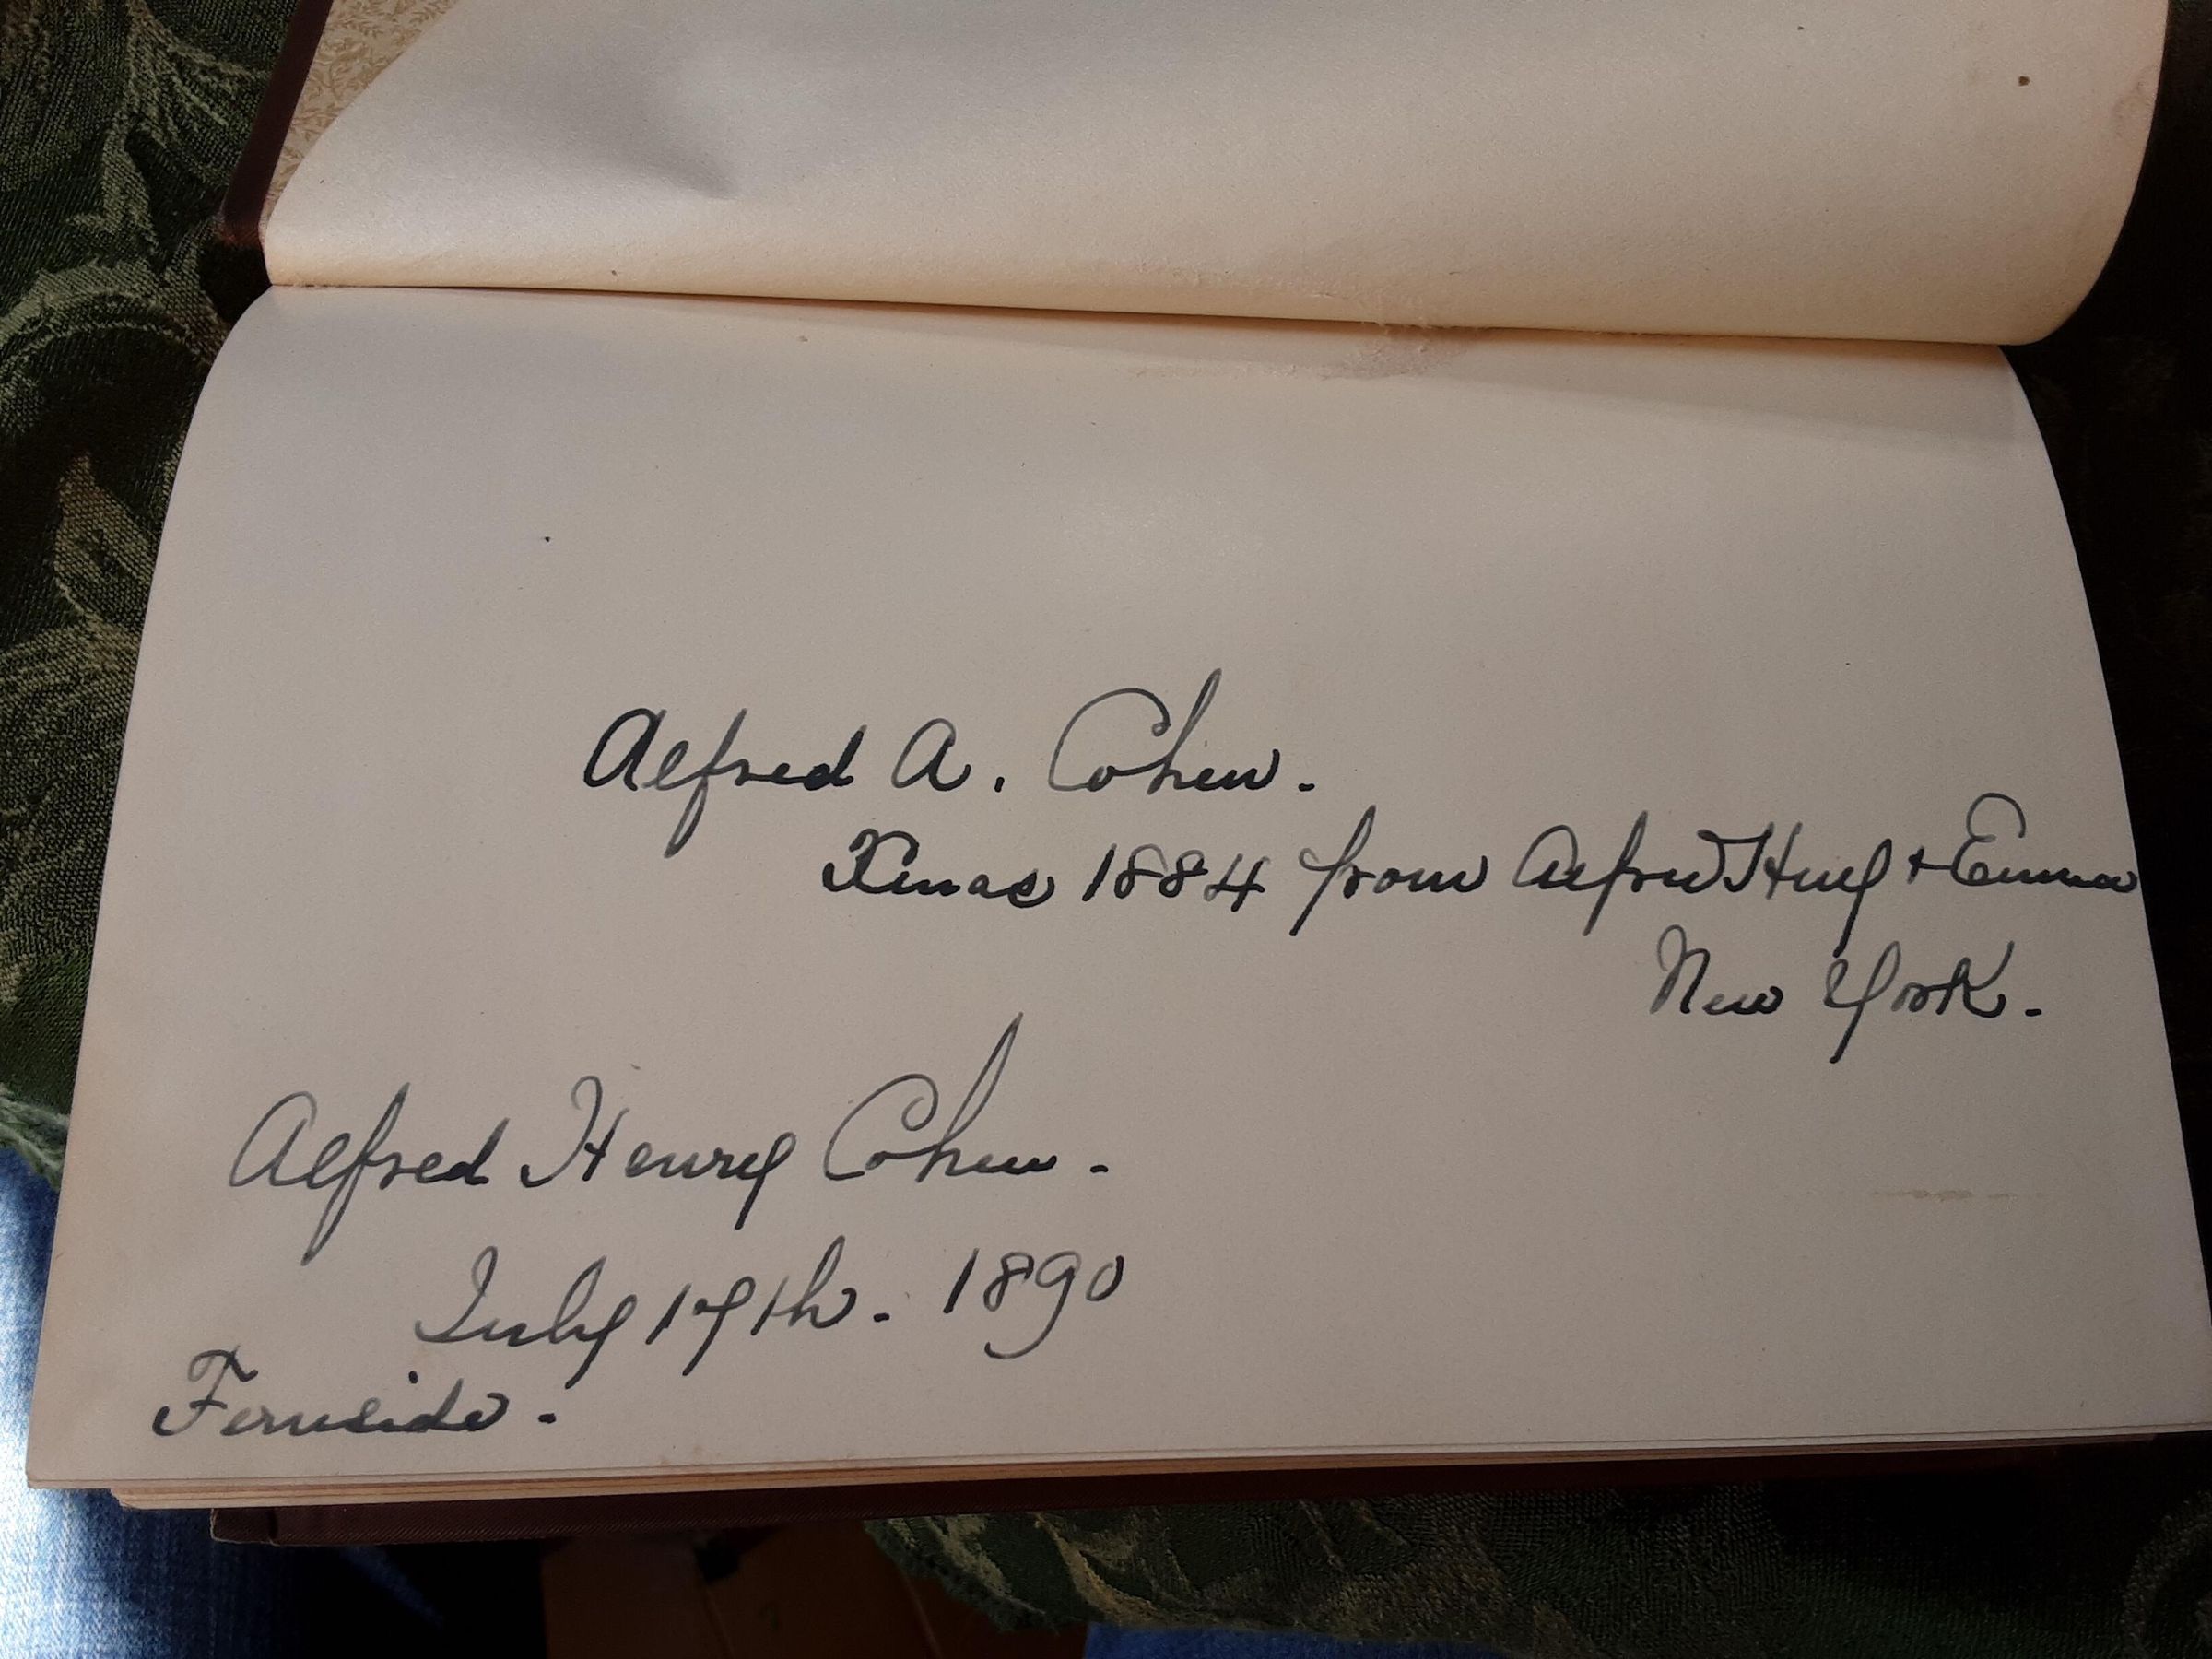 Alfred A. Cohen.
Xmas 1884 from Alfred Huy + Emma
New York.
Alfred Henry Cohen.
July 17th. 1890
Fernside.